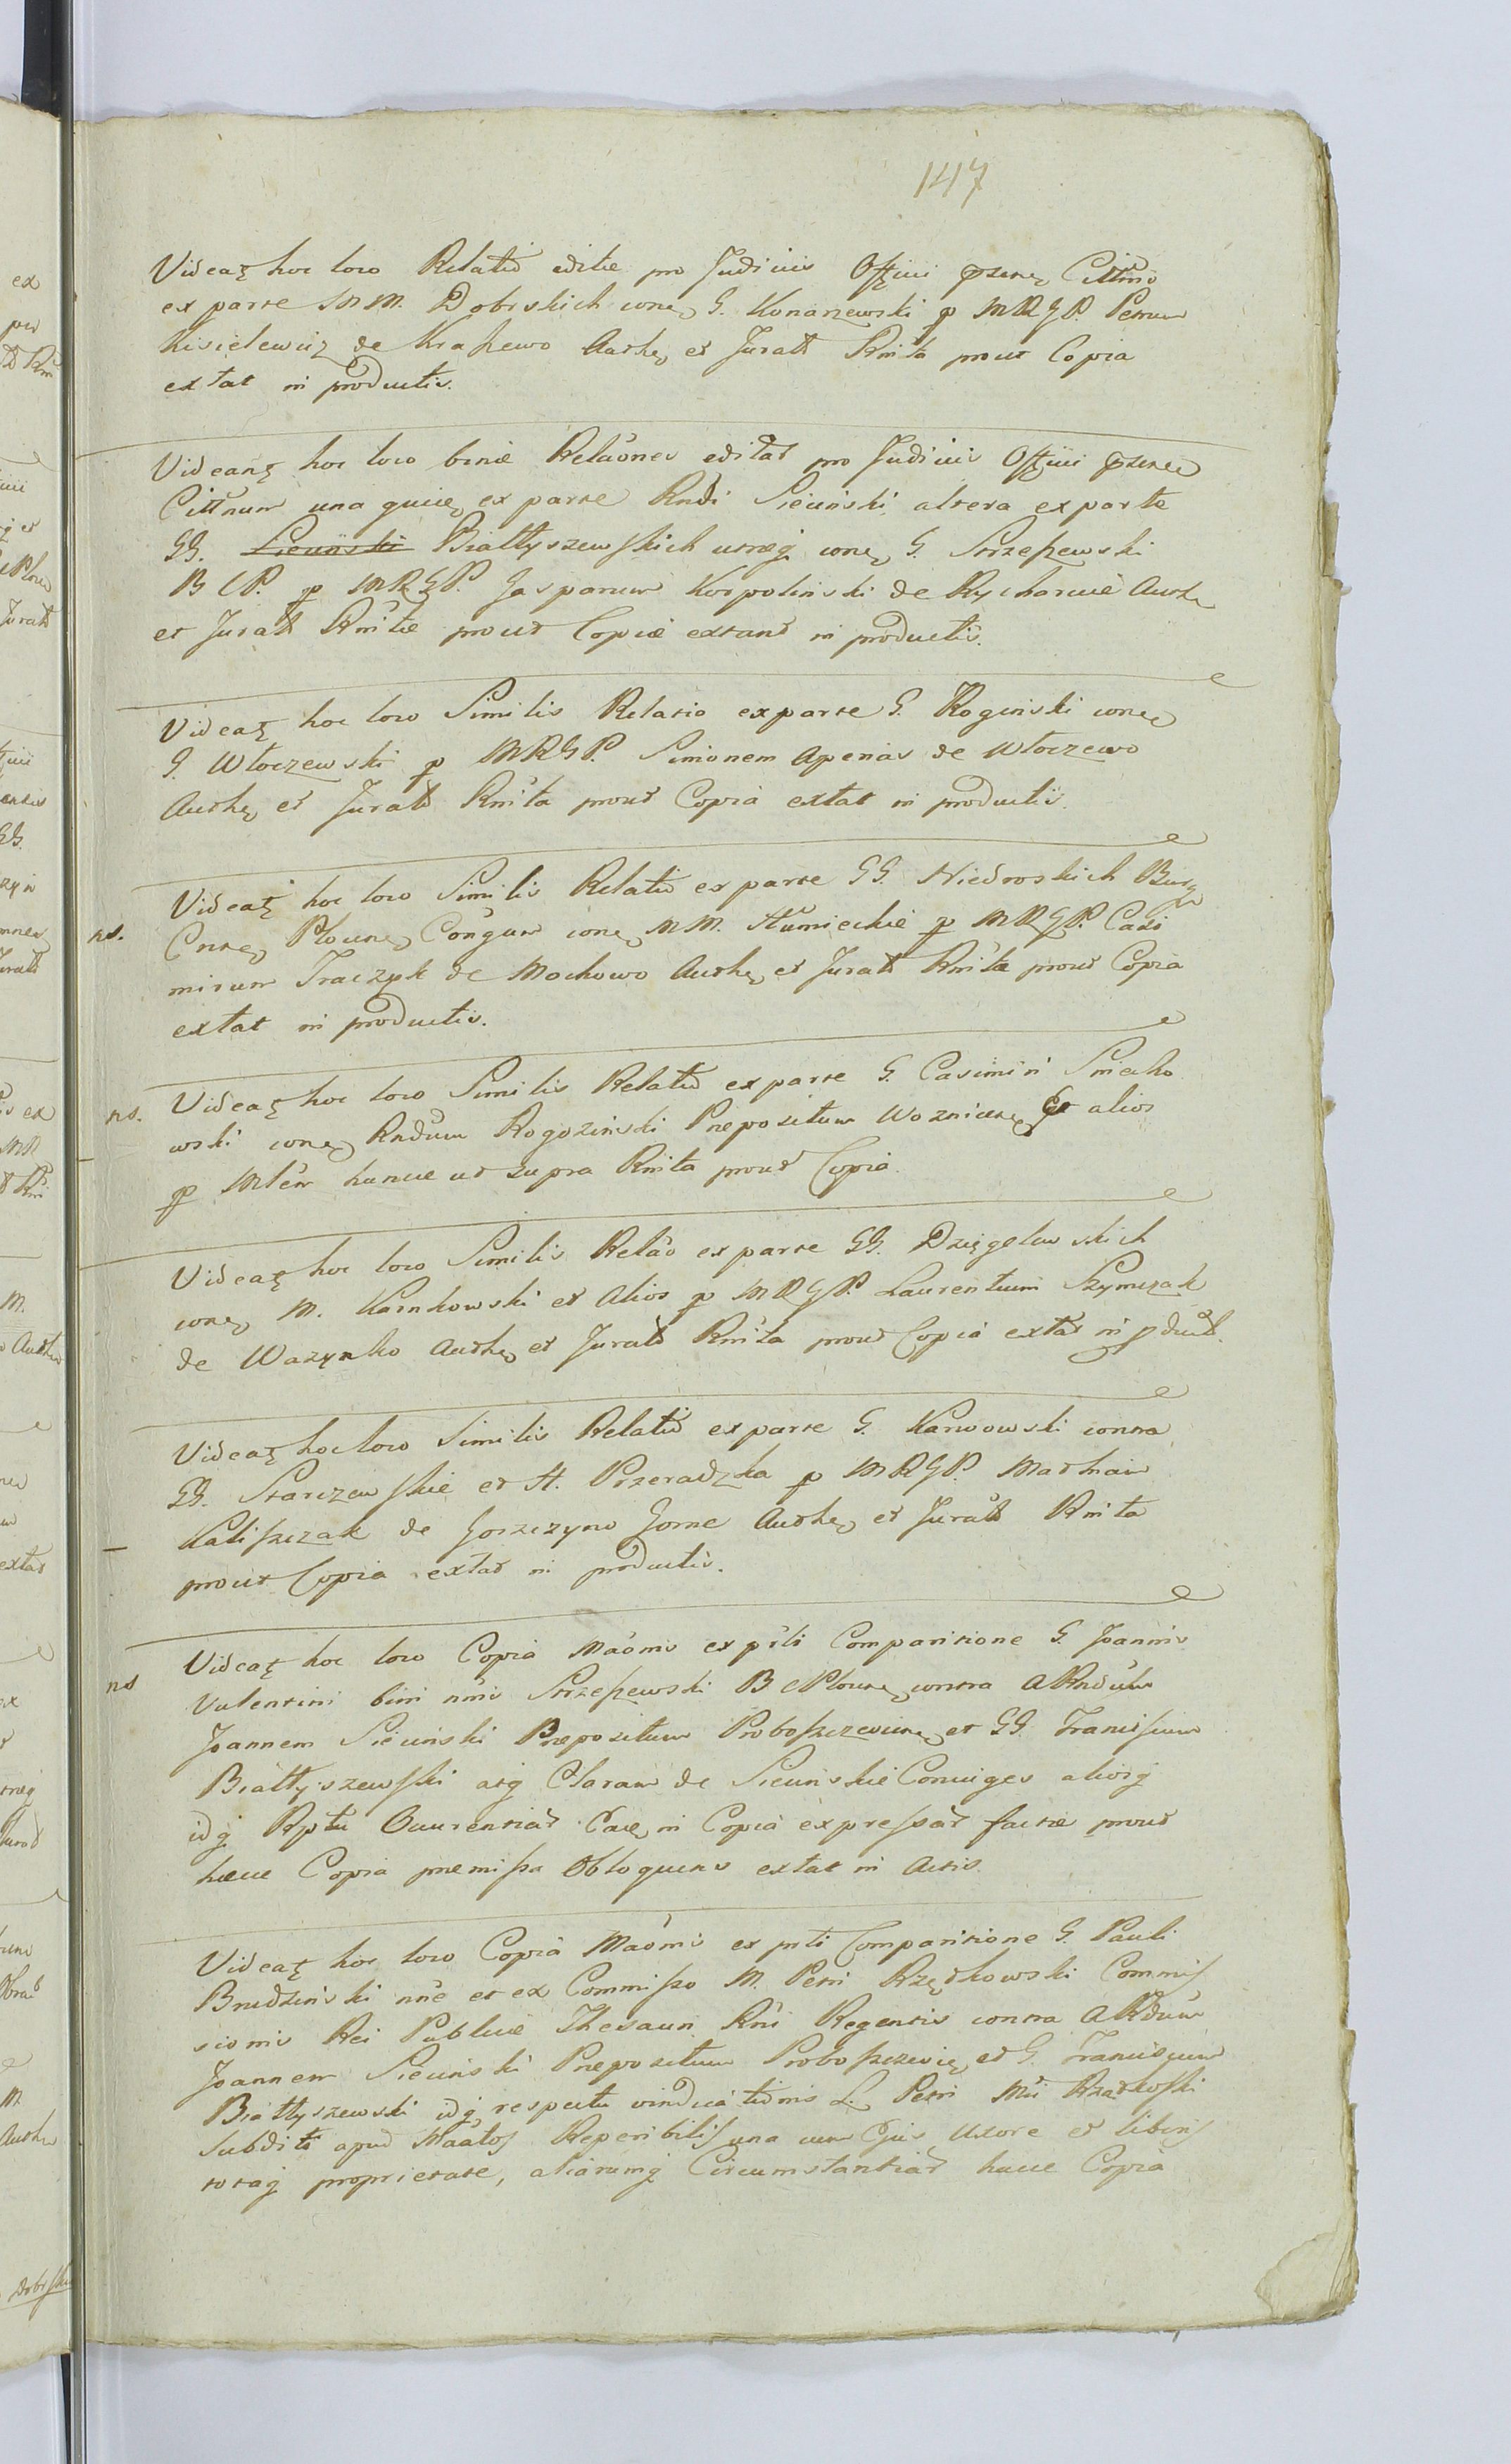 147
Videatz hoc loco Relatio editæ pro Judiciis Offcii
ex parte MM. Dobrskich conę G. Konarzewski p MRGP. Petrum
Kisielewicz de Krassewo Authę et Jurat Rmta prout Copia
extat in productis.
Videantz hoc loco binæ Relaōnes editæ pro Judiciis Offcii
Cittnum una quidę ex parte Rndi Sieciński altera ex parte
GG. Sieciński Białłyszewskich utræq conę G. Strzeszewski
B C P. p MRGP. Gasparum Karpolinski de Rycharcicè Authę
et Jurat Rmtæ prout Copiæ extant in productis.
Videatz hoc loco Similis Relatio ex parte G. Roginski conę
G. Włoczewski p MRGP. Simonem Apenas de Włoczewo
Authę et Jurat Rmta prout Copia extat in productis.
Videatz hoc loco Similis Relatio ex parte GG. Niedroskich Burg
ns. Cnsę Plocnę Cōngum conę MM. Humieckie p MRGP. Casi
mirum Traczyk de Mochowo Authę et Jurat Rmta prout Copia
extat in productis.
ns. Videatz hoc loco Similis Relatio ex parte G. Casimiri Smiecho
wski conę Rndum Rogozinski Præpositum Woznicenę et alios
p Mtēm hunce ut supra Rmta prout Copia.
Videatz hoc loco Similis Relāo ex parte GG. Dzięgelewskich
conę M. Karnkowski et Alios p MRGP. Laurentium Szymczak
de Wazynko Authę et Jurat Rmta prout Copia extat in pduct.
Videatz hoc loco Similis Relatio ex parte G. Karwowski contra
GG. Starczewskie et H. Przeradzka p MRGP. Mathiam
Kaliszczak de Goszczyno Gorne Authę et Jurat Rmta
prout Copia extat in productis.
ns Videatz hoc loco Copia Māōnis ex psli Comparitione G. Joannis
Valentini bini nnis Strzeszewski B C Plocnę contra ARndum
Joannem Sieciński Præpositum Proboszczewicnę et GG. Franciscum
Białłyszewski atq Claram de Siecinskie Coniuges aliosq
idq Rptu Occurentiar Cāę in Copia expressar factæ prout
hæcce Copia præmissa Obloquens extat in Actis.
Videatz hoc loco Copia Māōnis ex psti Comparitione G. Pauli
Brudzinski nne et ex Commisso M. Petri Rządkowski Commis
sionis Rei Publicæ Thesauri Rni Regentis contra ARdum
Joannem Sieciński Præpositum Proboszczewię et G. Franciscum
Białłyszewski idq respectu vindicationis L. Petri Mci Rządkoski
Subditi apud Māātos Reperibilis una cum Ejus Uxore et liberis
totaq proprietate, aliarumq Circumstantiar hæcce Copia